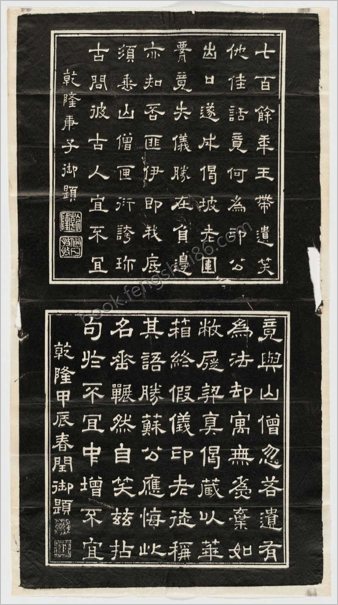 七百餘年玉帶遺笑
他佳話竟何為印公
出口遂成偈坡老圍
腰竟失儀勝在自邊
亦知吾匪伊即我底
須垂山僧匣衍誇珎
古問彼古人宜不宜
乾隆庚子御題
竟與山僧忽若遺有
為法却寓無為棄如
敝屣契真偈藏以華
箱終假儀印老徒稱
其語勝蘇公應悔此
名垂囅然自笑茲拈
句於不宜中增不宜
乾隆甲辰春閏御題